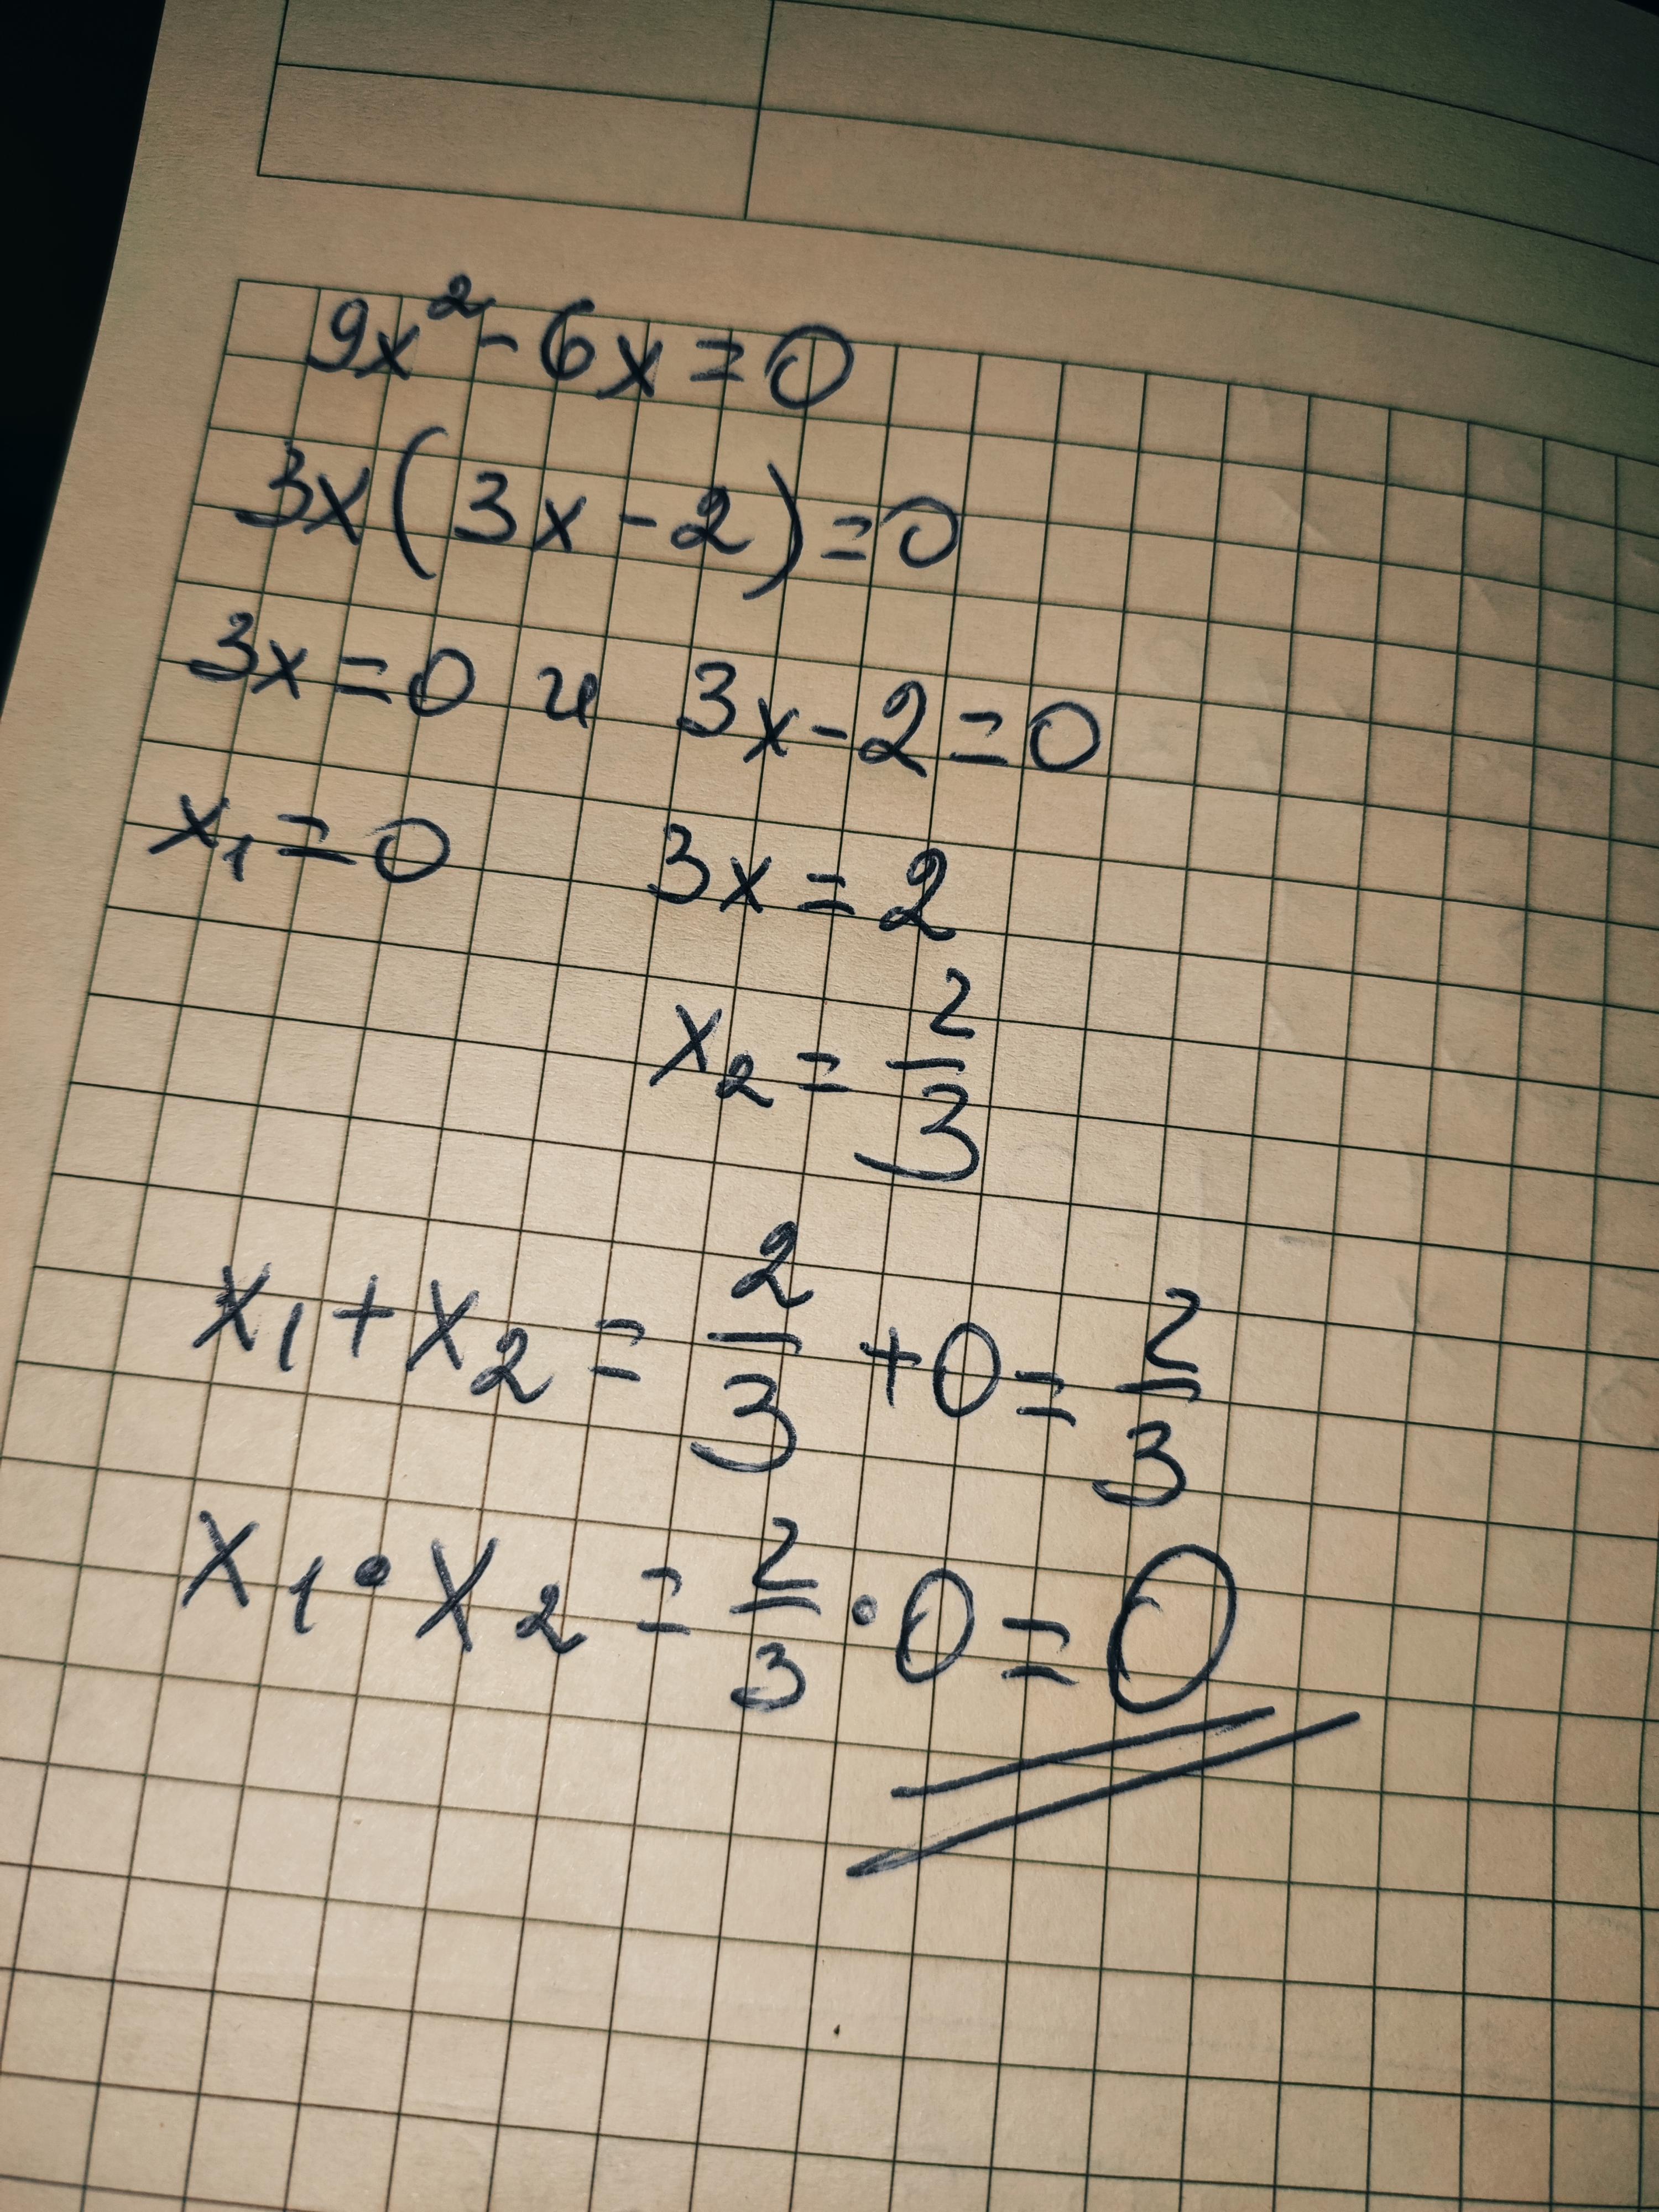 9x² - 6x = 0
3x(3x - 2) = 0
3x = 0 и 3x - 2 = 0
x₁ = 0 3x = 2
x₂ = 2/3
x₁ + x₂ = 2/3 + 0 = 2/3
x₁ · x₂ = 2/3 · 0 = 0